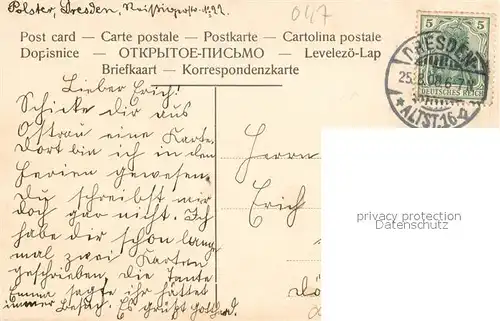 Polster, Dresden,
047
Post card — Carte postale — Postkarte — Cartolina postale
Dopisnice — ОТКРЫТОЕ-ПИСЬМО — Levelező-Lap
Briefkaart — Korrespondenzkarte
5 5
DEUTSCHES REICH
DRESDEN
ALTST. 16
Lieber Erich!
Schicke dir aus
Ostrau eine Karte.
Dort bin ich in den
Ferien gewesen.
Du schreibst mir
doch gar nicht. Ich
habe dir schon lange
mal zwei Karten
geschrieben. Die Tante
Emma sagte ihr hättet
immer Besuch. Es grüßt Gotthard.
Herrn
Erich
privacy protection
Datenschutz